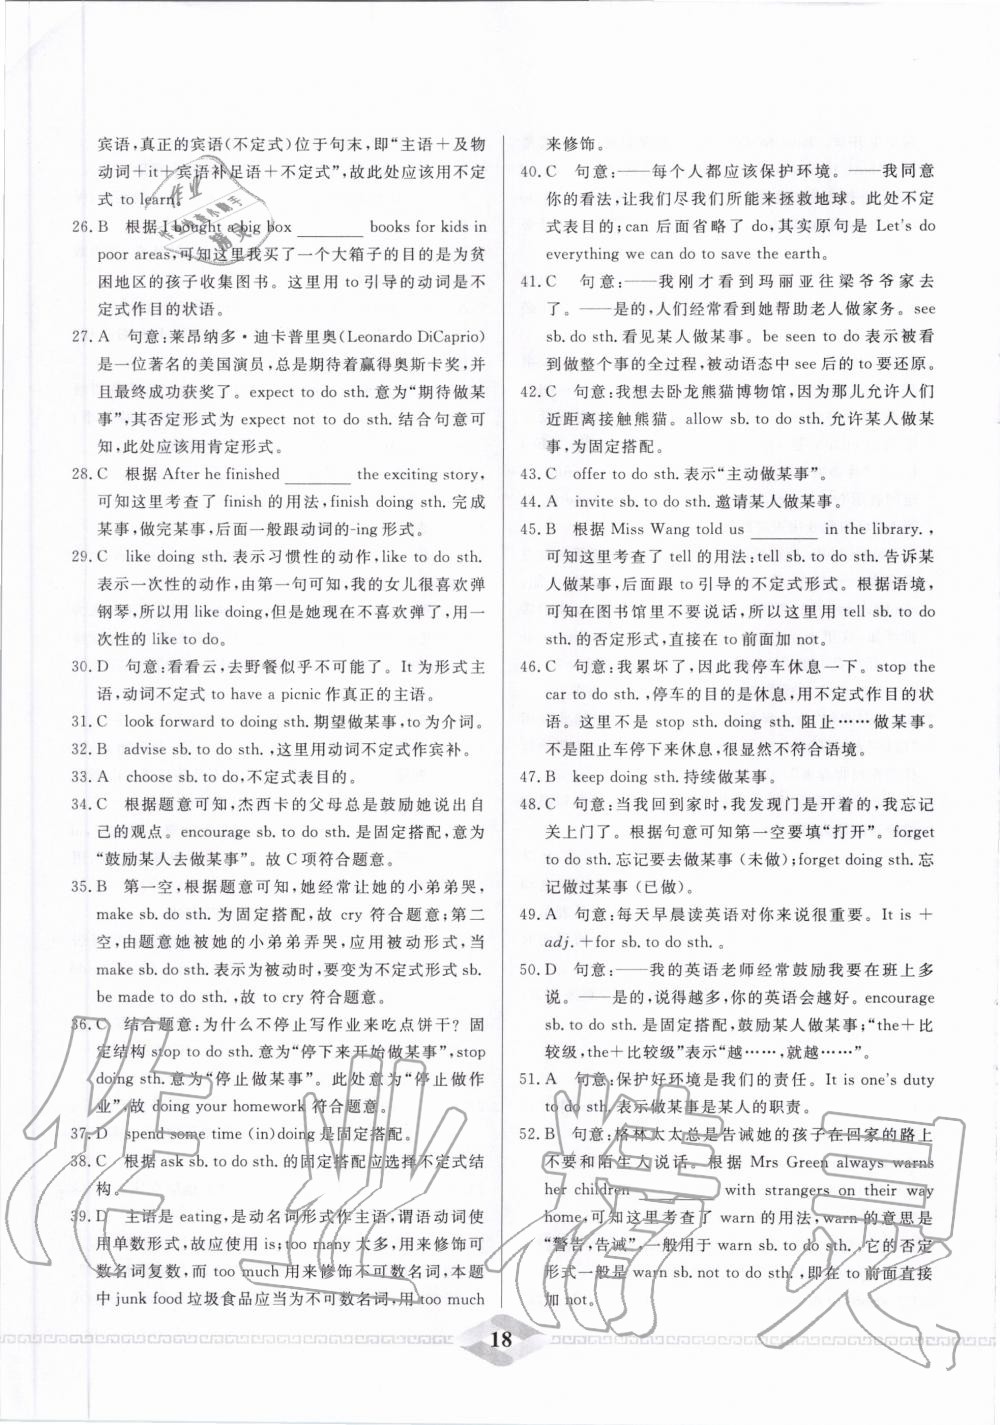 宾语,真正的宾语(不定式)位于句末,即“主语+及物
动词+it+宾语补足语+不定式”,故此处应该用不定
式 to learn。
26. B 根据 I bought a big box ________ books for kids in
poor areas,可知这里我买了一个大箱子的目的是为贫
困地区的孩子收集图书。这里用 to 引导的动词是不
定式作目的状语。
27. A 句意:莱昂纳多·迪卡普里奥(Leonardo DiCaprio)
是一位著名的美国演员,总是期待着赢得奥斯卡奖,并
且最终成功获奖了。expect to do sth. 意为“期待做某
事”,其否定形式为 expect not to do sth. 结合句意可
知,此处应该用肯定形式。
28. C 根据 After he finished ________ the exciting story,
可知这里考查了 finish 的用法,finish doing sth. 完成
某事,做完某事,后面一般跟动词的-ing 形式。
29. C like doing sth. 表示习惯性的动作,like to do sth.
表示一次性的动作,由第一句可知,我的女儿很喜欢弹
钢琴,所以用 like doing,但是她现在不喜欢弹了,用一
次性的 like to do。
30. D 句意:看看云,去野餐似乎不可能了。It 为形式主
语,动词不定式 to have a picnic 作真正的主语。
31. C look forward to doing sth. 期望做某事,to 为介词。
32. B advise sb. to do sth. ,这里用动词不定式作宾补。
33. A choose sb. to do,不定式表目的。
34. C 根据题意可知,杰西卡的父母总是鼓励她说出自
己的观点。encourage sb. to do sth. 是固定搭配,意为
“鼓励某人去做某事”。故 C 项符合题意。
35. B 第一空,根据题意可知,她经常让她的小弟弟哭,
make sb. do sth. 为固定搭配,故 cry 符合题意;第二
空,由题意她被她的小弟弟弄哭,应用被动形式,当
make sb. do sth. 表示为被动时,要变为不定式形式 sb.
be made to do sth. ,故 to cry 符合题意。
36. C 结合题意:为什么不停止写作业来吃点饼干?固
定结构 stop to do sth. 意为“停下来开始做某事”,stop
doing sth. 意为“停止做某事”。此处意为“停止做作
业”,故 doing your homework 符合题意。
37. D spend some time (in)doing 是固定搭配。
38. C 根据 ask sb. to do sth. 的固定搭配应选择不定式结
构。
39. D 主语是 eating,是动名词形式作主语,谓语动词使
用单数形式,故应使用 is;too many 太多,用来修饰可
数名词复数,而 too much 用来修饰不可数名词,本题
中 junk food 垃圾食品应当为不可数名词,用 too much
来修饰。
40. C 句意:——每个人都应该保护环境。——我同意
你的看法,让我们尽我们所能来拯救地球。此处不定
式表目的;can 后面省略了 do,其实原句是 Let's do
everything we can do to save the earth.
41. C 句意:——我刚才看到玛丽亚往梁爷爷家去
了。——是的,人们经常看到她帮助老人做家务。see
sb. do sth. 看见某人做某事。be seen to do 表示被看
到做整个事的全过程,被动语态中 see 后的 to 要还原。
42. C 句意:我想去卧龙熊猫博物馆,因为那儿允许人们
近距离接触熊猫。allow sb. to do sth. 允许某人做某
事,为固定搭配。
43. C offer to do sth. 表示“主动做某事”。
44. A invite sb. to do sth. 邀请某人做某事。
45. B 根据 Miss Wang told us ________ in the library. ,
可知这里考查了 tell 的用法:tell sb. to do sth. 告诉某
人做某事,后面跟 to 引导的不定式形式。根据语境,
可知在图书馆里不要说话,所以这里用 tell sb. to do
sth. 的否定形式,直接在 to 前面加 not。
46. C 句意:我累坏了,因此我停车休息一下。stop the
car to do sth. ,停车的目的是休息,用不定式作目的状
语。这里不是 stop sth. doing sth. 阻止……做某事。
不是阻止车停下来休息,很显然不符合语境。
47. B keep doing sth. 持续做某事。
48. C 句意:当我回到家时,我发现门是开着的,我忘记
关上门了。根据句意可知第一空要填“打开”。forget
to do sth. 忘记要去做某事(未做);forget doing sth. 忘
记做过某事(已做)。
49. A 句意:每天早晨读英语对你来说很重要。It is +
adj. +for sb. to do sth. 。
50. D 句意:——我的英语老师经常鼓励我要在班上多
说。——是的,说得越多,你的英语会越好。encourage
sb. to do sth. 是固定搭配,鼓励某人做某事;“the+比
较级,the+比较级”表示“越……,就越……”。
51. A 句意:保护好环境是我们的责任。It is one's duty
to do sth. 表示做某事是某人的职责。
52. B 句意:格林太太总是告诫她的孩子在回家的路上
不要和陌生人说话。根据 Mrs Green always warns
her children ________ with strangers on their way
home,可知这里考查了 warn 的用法,warn 的意思是
“警告,告诫”,一般用于 warn sb. to do sth. ,它的否定
形式一般是 warn sb. not to do sth. ,即在 to 前面直接
加 not。
18
作业精灵